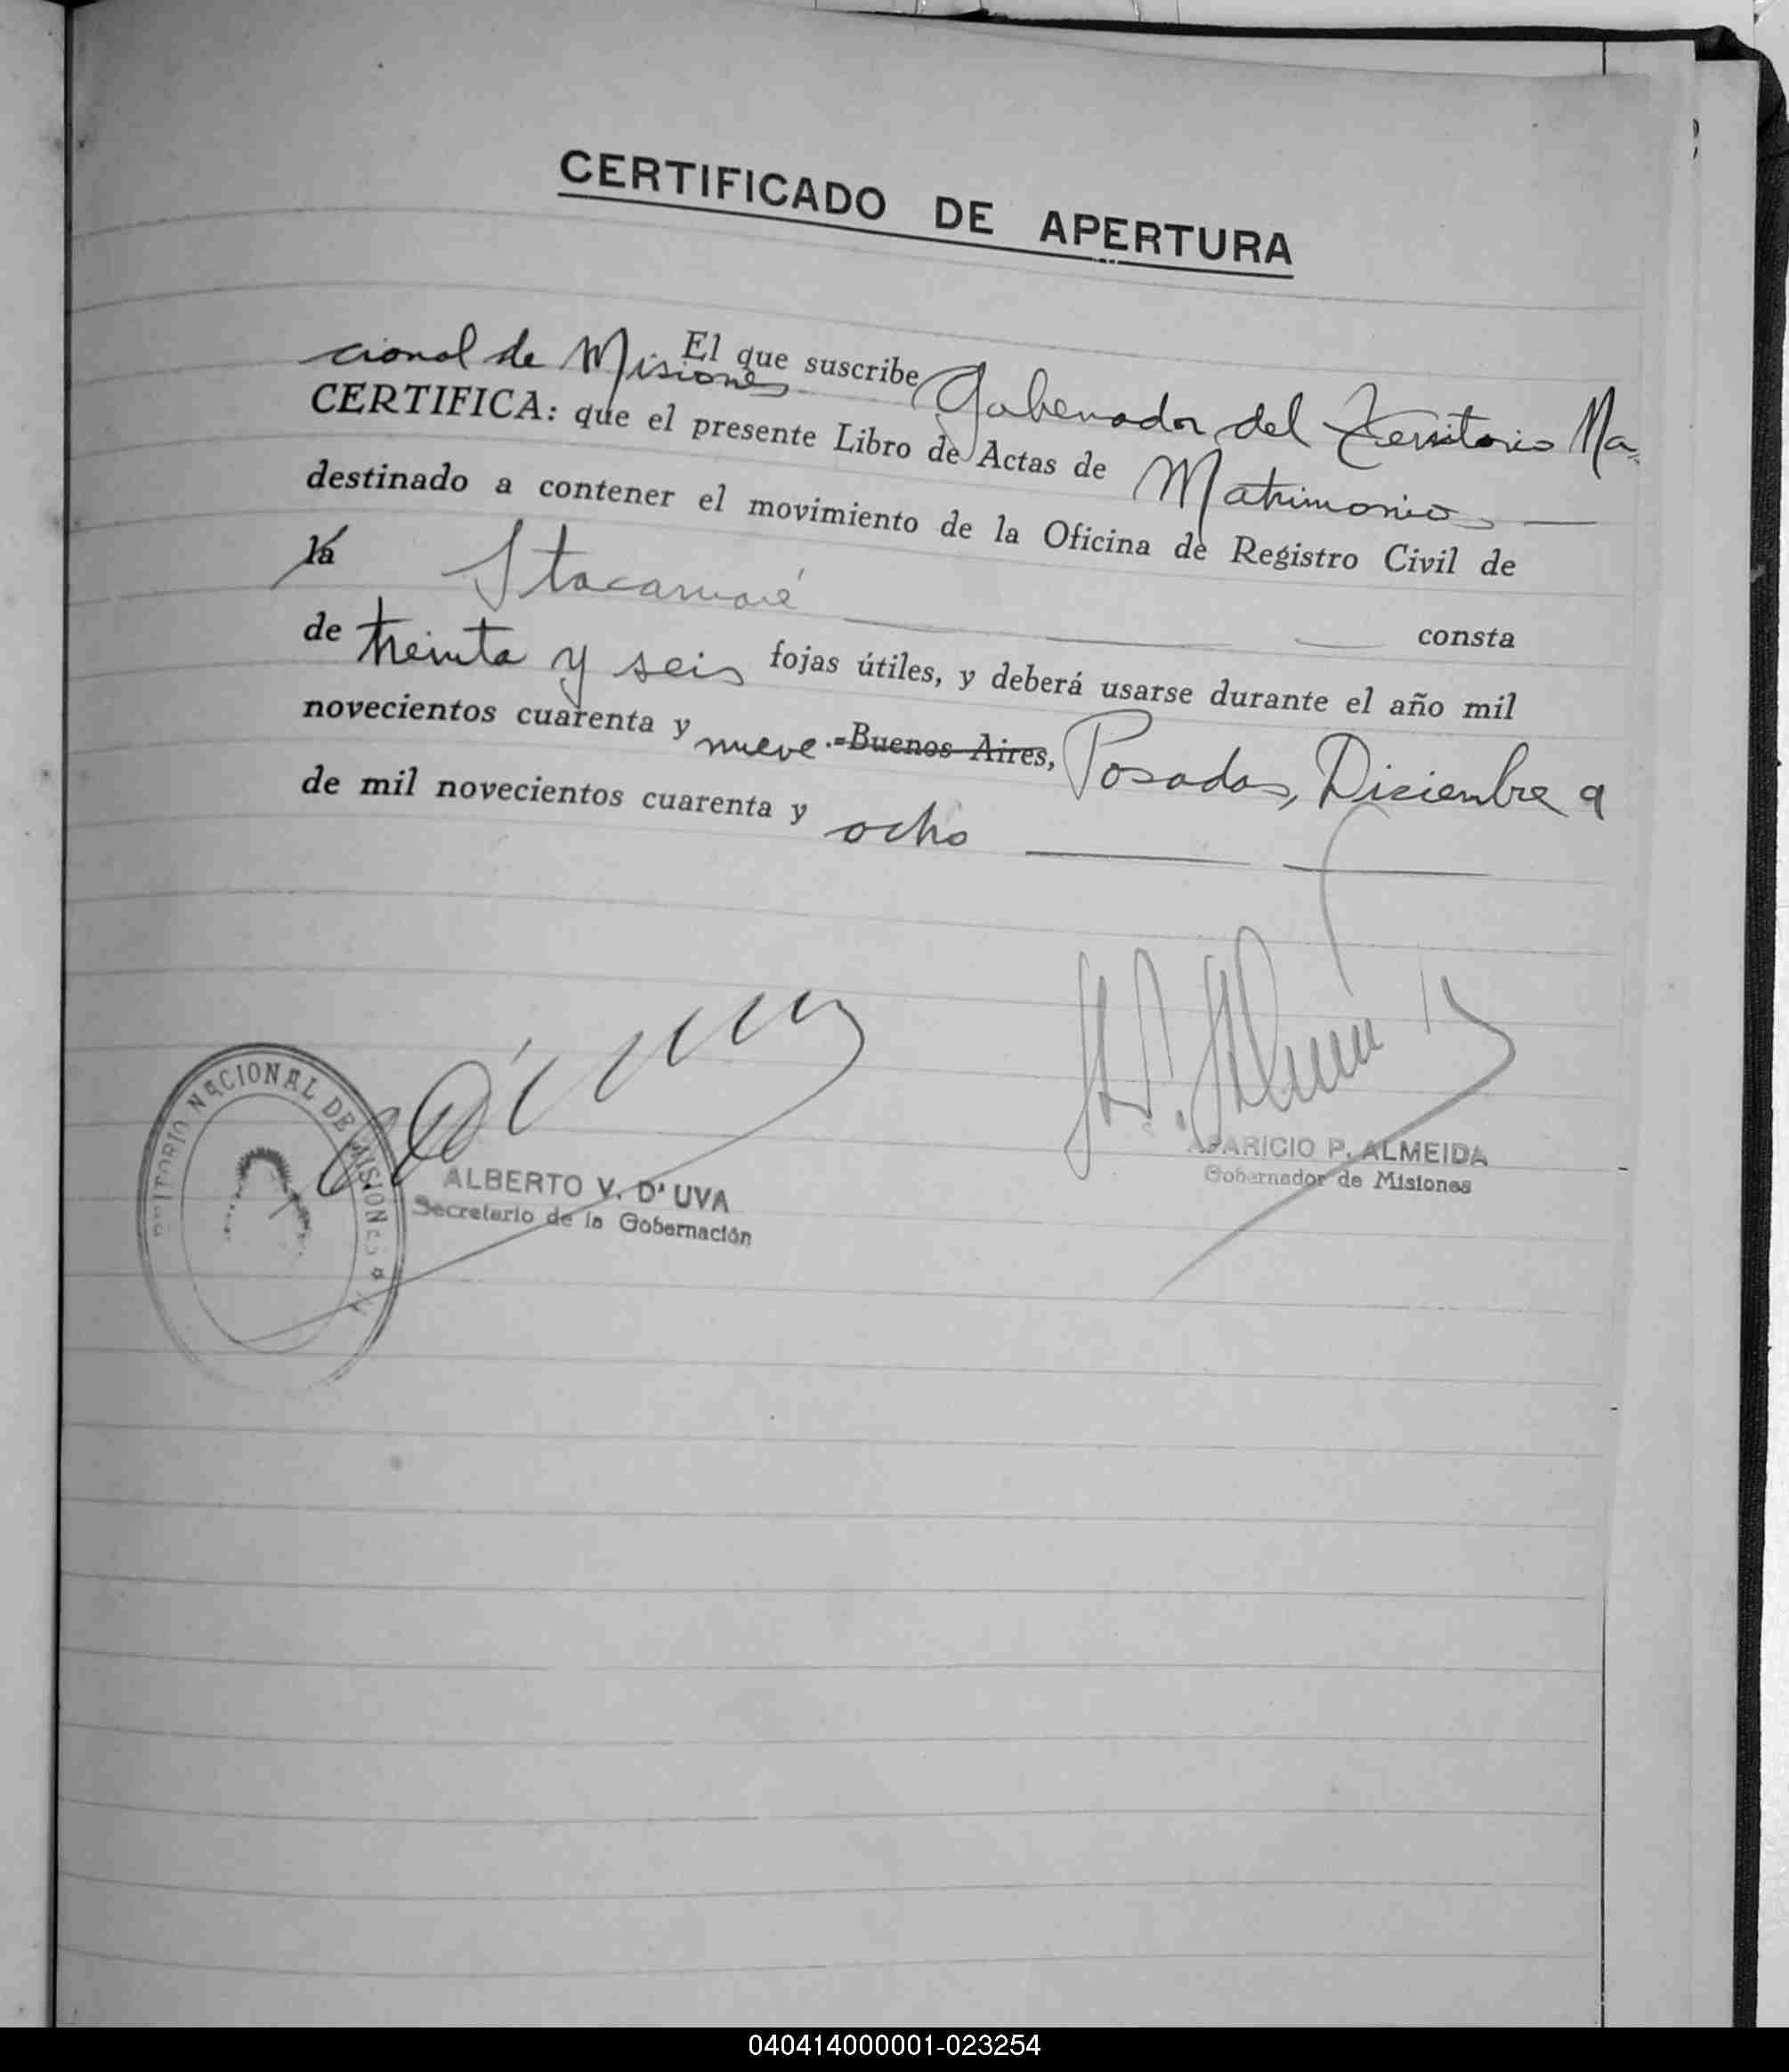 CERTIFICADO DE APERTURA
El que suscribe Gobernador del Territorio Na-
cional de Misiones
CERTIFICA: que el presente Libro de Actas de Matrimonios
destinado a contener el movimiento de la Oficina de Registro Civil de
la Itacaruaré consta
de treinta y seis fojas útiles, y deberá usarse durante el año mil
novecientos cuarenta y nueve.-Buenos Aires, Posadas, Diciembre 9
de mil novecientos cuarenta y ocho
TERRITORIO NACIONAL DE MISIONES
ALBERTO V. D'UVA
Secretario de la Gobernación
APARICIO P. ALMEIDA
Gobernador de Misiones
040414000001-023254